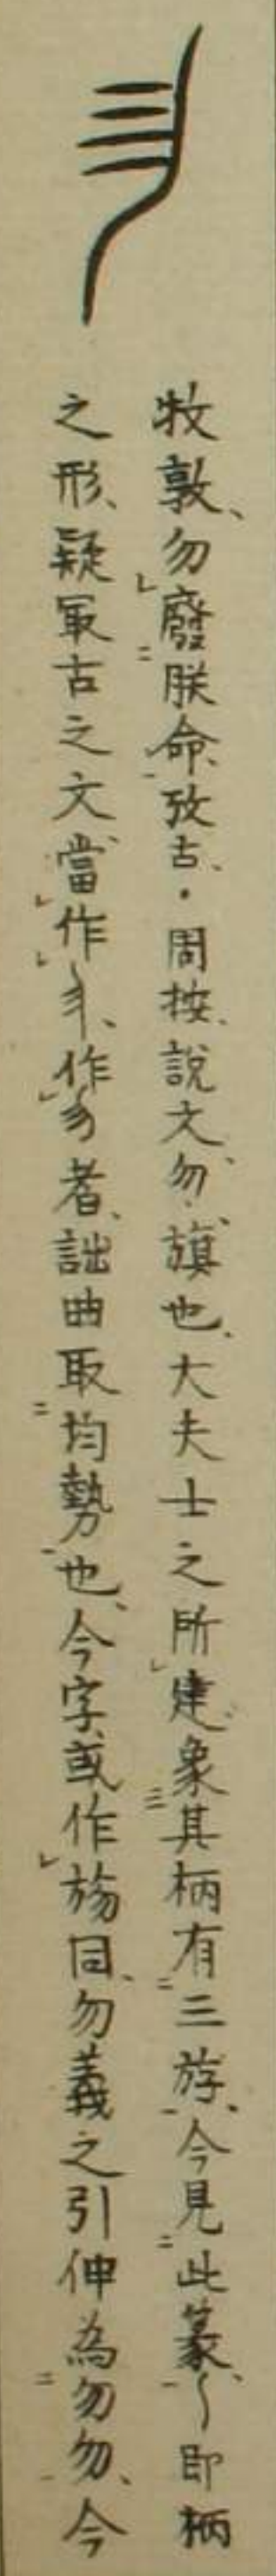 牧敦、勿廢朕命、攷古、・周按、説文、勿、旗也、大夫士之所建、象其柄有三斿、今見此篆、〵即柄
之形、疑冣古之文、當作、作者、詘曲取均勢也、今字或作㫚同、勿義之引伸為勿勿、今